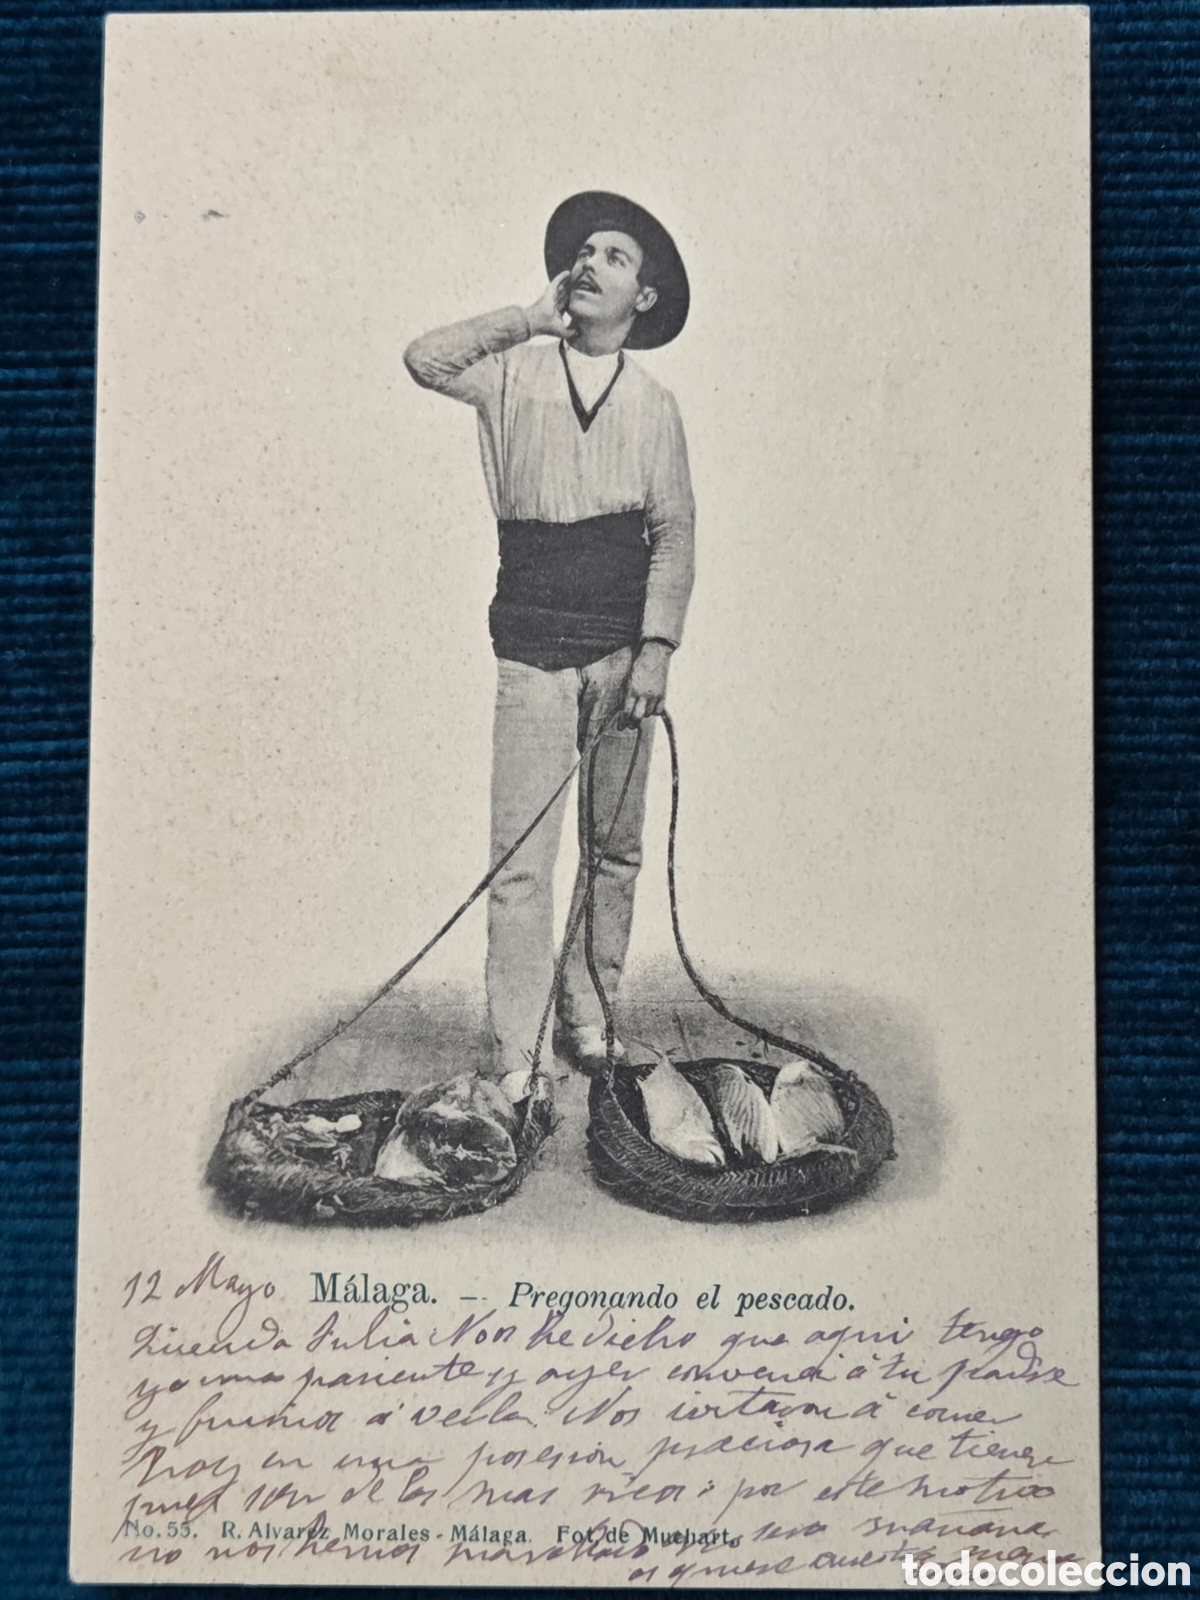 12 Mayo Málaga. — Pregonando el pescado.
Querida Julia: Nos he dicho que aqui tengo
yo una pariente y ayer convenci á tu padre
y fuimos á verla. Nos invitaron á comer
hoy en una posesión preciosa que tienen
pues son de los mas ricos: por este motivo
No. 55. R. Alvarez Morales - Málaga. Fot. de Muchart.
no nos hemos marchado sera mañana.
os quiere vuestra
todocoleccion